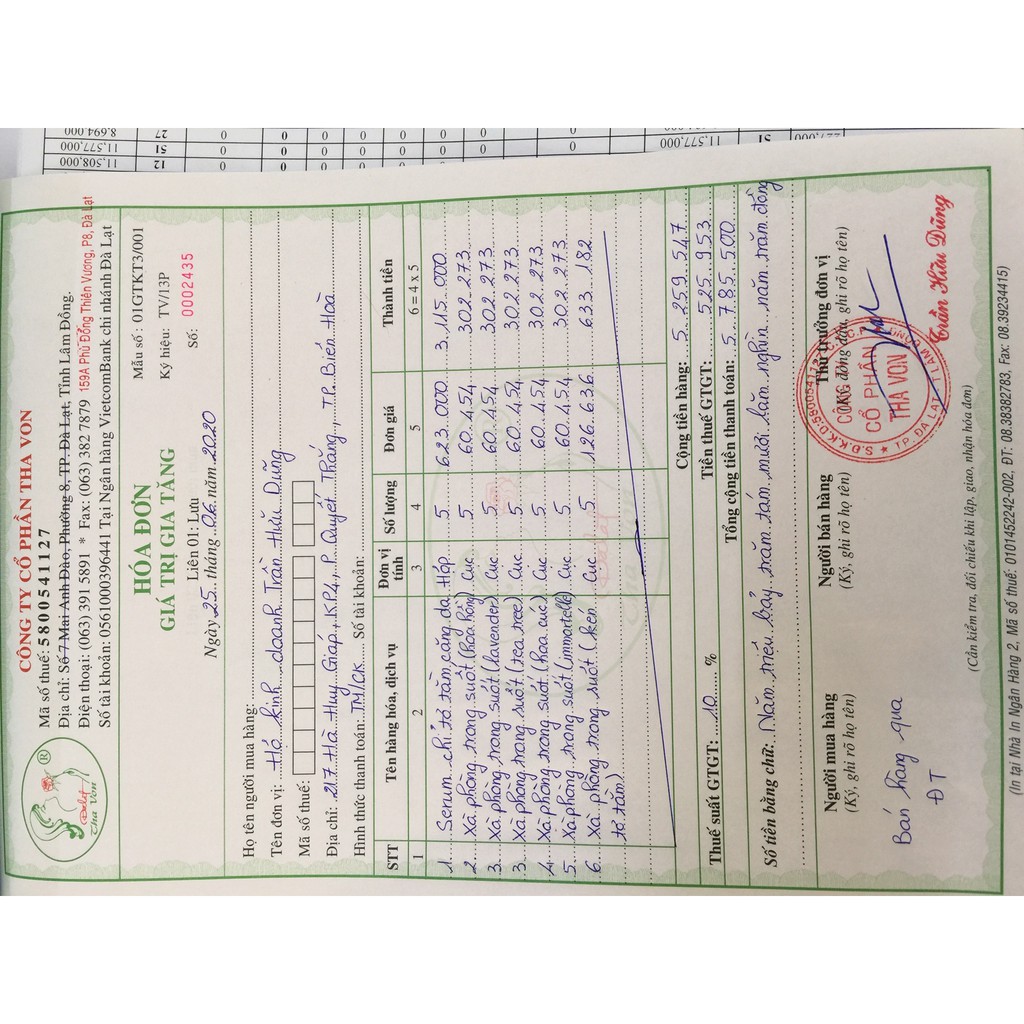 CÔNG TY CỔ PHẦN THA VON
Mã số thuế: 5800541127
Địa chỉ: Số 7 Mai Anh Đào, Phường 8, TP. Đà Lạt, Tỉnh Lâm Đồng.
Điện thoại: (063) 391 5891 * Fax: (063) 382 7879 159A Phù Đổng Thiên Vương, P8, Đà Lạt
Số tài khoản: 0561000396441 Tại Ngân hàng VietcomBank chi nhánh Đà Lạt
®
Dalat
Tha Von
HÓA ĐƠN
GIÁ TRỊ GIA TĂNG
Liên 01: Lưu
Ngày 25 tháng 06 năm 2020
Mẫu số: 01GTKT3/001
Ký hiệu: TV/13P
Số: 0002435
Họ tên người mua hàng:
Tên đơn vị: Hộ kinh doanh Trần Hữu Dũng
Mã số thuế:
Địa chỉ: 217 Hà Huy Giáp, KP4, P Quyết Thắng, TP. Biên Hoà
Hình thức thanh toán: TM/CK Số tài khoản:
STT Tên hàng hóa, dịch vụ Đơn vị tính Số lượng Đơn giá Thành tiền
1 2 3 4 5 6 = 4 x 5
1. Serum chỉ tơ tằm căng da Hộp 5 623.000 3.115.000
2. Xà phòng trong suốt (hoa hồng) Cục 5 60.454 302.273
3. Xà phòng trong suốt (lavender) Cục 5 60.454 302.273
3. Xà phòng trong suốt (tea tree) Cục 5 60.454 302.273
4. Xà phòng trong suốt (hoa cúc) Cục 5 60.454 302.273
5. Xà phòng trong suốt (immortelle) Cục 5 60.454 302.273
6. Xà phòng trong suốt (kén Cục 5 126.636 633.182
tơ tằm)
Cộng tiền hàng: 5.259.547
Thuế suất GTGT: 10 % Tiền thuế GTGT: 525.953
Tổng cộng tiền thanh toán: 5.785.500
Số tiền bằng chữ: Năm triệu bảy trăm tám mươi lăm nghìn năm trăm đồng
Người mua hàng
(Ký, ghi rõ họ tên)
Người bán hàng
(Ký, ghi rõ họ tên)
Thủ trưởng đơn vị
(Ký, đóng dấu, ghi rõ họ tên)
Bán hàng qua
ĐT
S.Đ.K.K.D:5800541127
CÔNG TY
CỔ PHẦN
THA VON
TP. ĐÀ LẠT - T. LÂM ĐỒNG
Trần Hữu Dũng
(Cần kiểm tra, đối chiếu khi lập, giao, nhận hóa đơn)
(In tại Nhà In Ngân Hàng 2, Mã số thuế: 0101452242-002, ĐT: 08.38382783, Fax: 08.39234415)
12 11,508,000 0 0 0 0 0 0 0
51 11,577,000 0 0 0 0 0 0 0 11,577,000 51
27 8,694,000 0 0 0 0 0 0 0